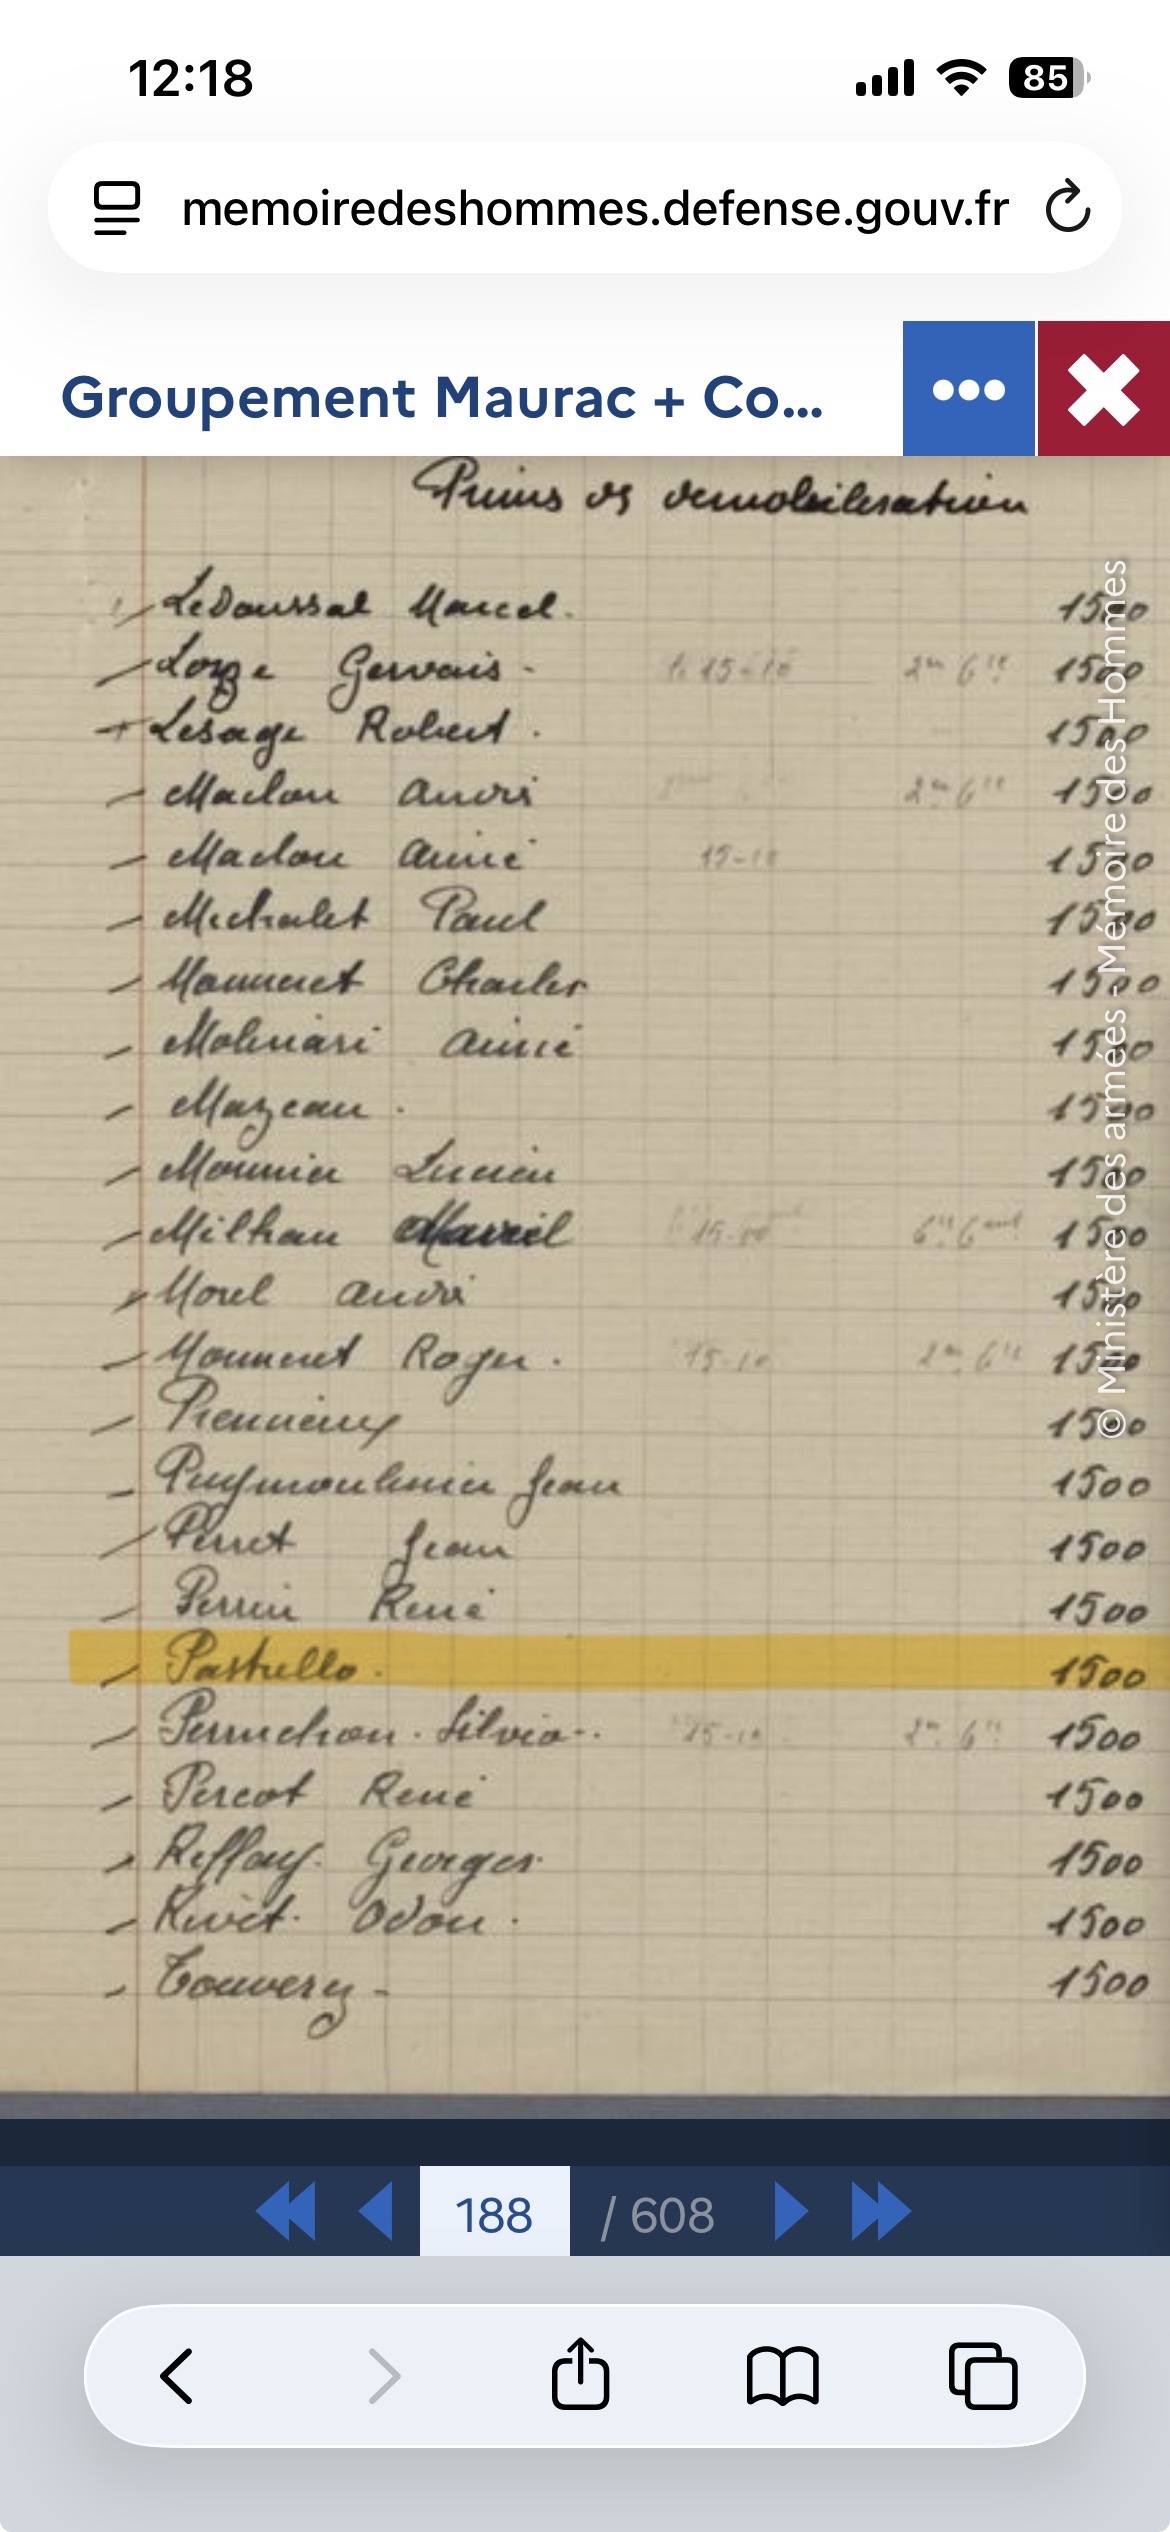 12:18
85
memoiredeshommes.defense.gouv.fr
Groupement Maurac + Co...
Primes de demobilisation
LeDoussal Marcel. 1500
Gervais - 15-10 1500
Lesage Robert. 1500
André 1500
Aimé 15-10 1500
Michalet Paul 1500
Charles 1500
Molinari Aimé 1500
Mazeau. 1500
Mounier Lucien 1500
Milhau Marcel 1500
Morel André 1500
Roger. 15-10 1500
1500
Puymoulinier Jean 1500
Perret Jean 1500
Perrin René 1500
Pastrello. 1500
Perruchon. Silvio.. 1500
Percot René 1500
Reffay. Georges. 1500
Rivet. Odon. 1500
Touvery - 1500
© Ministère des armées - Mémoire des Hommes
188 / 608